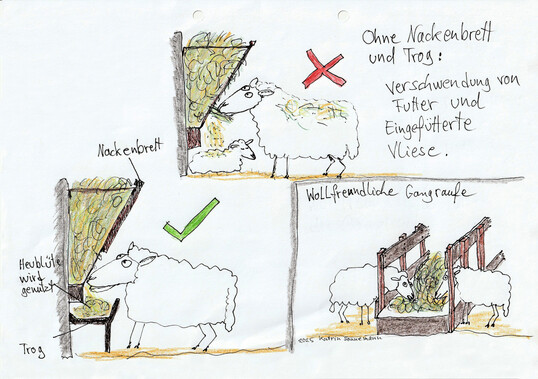 Ohne Nackenbrett
und Trog:
Verschwendung von
Futter und
Eingefütterte
Vliese.
Nackenbrett
Heublüte
wird
genutzt
Trog
Wollfreundliche Gangraufe
©2025 Katrin Sonnemann